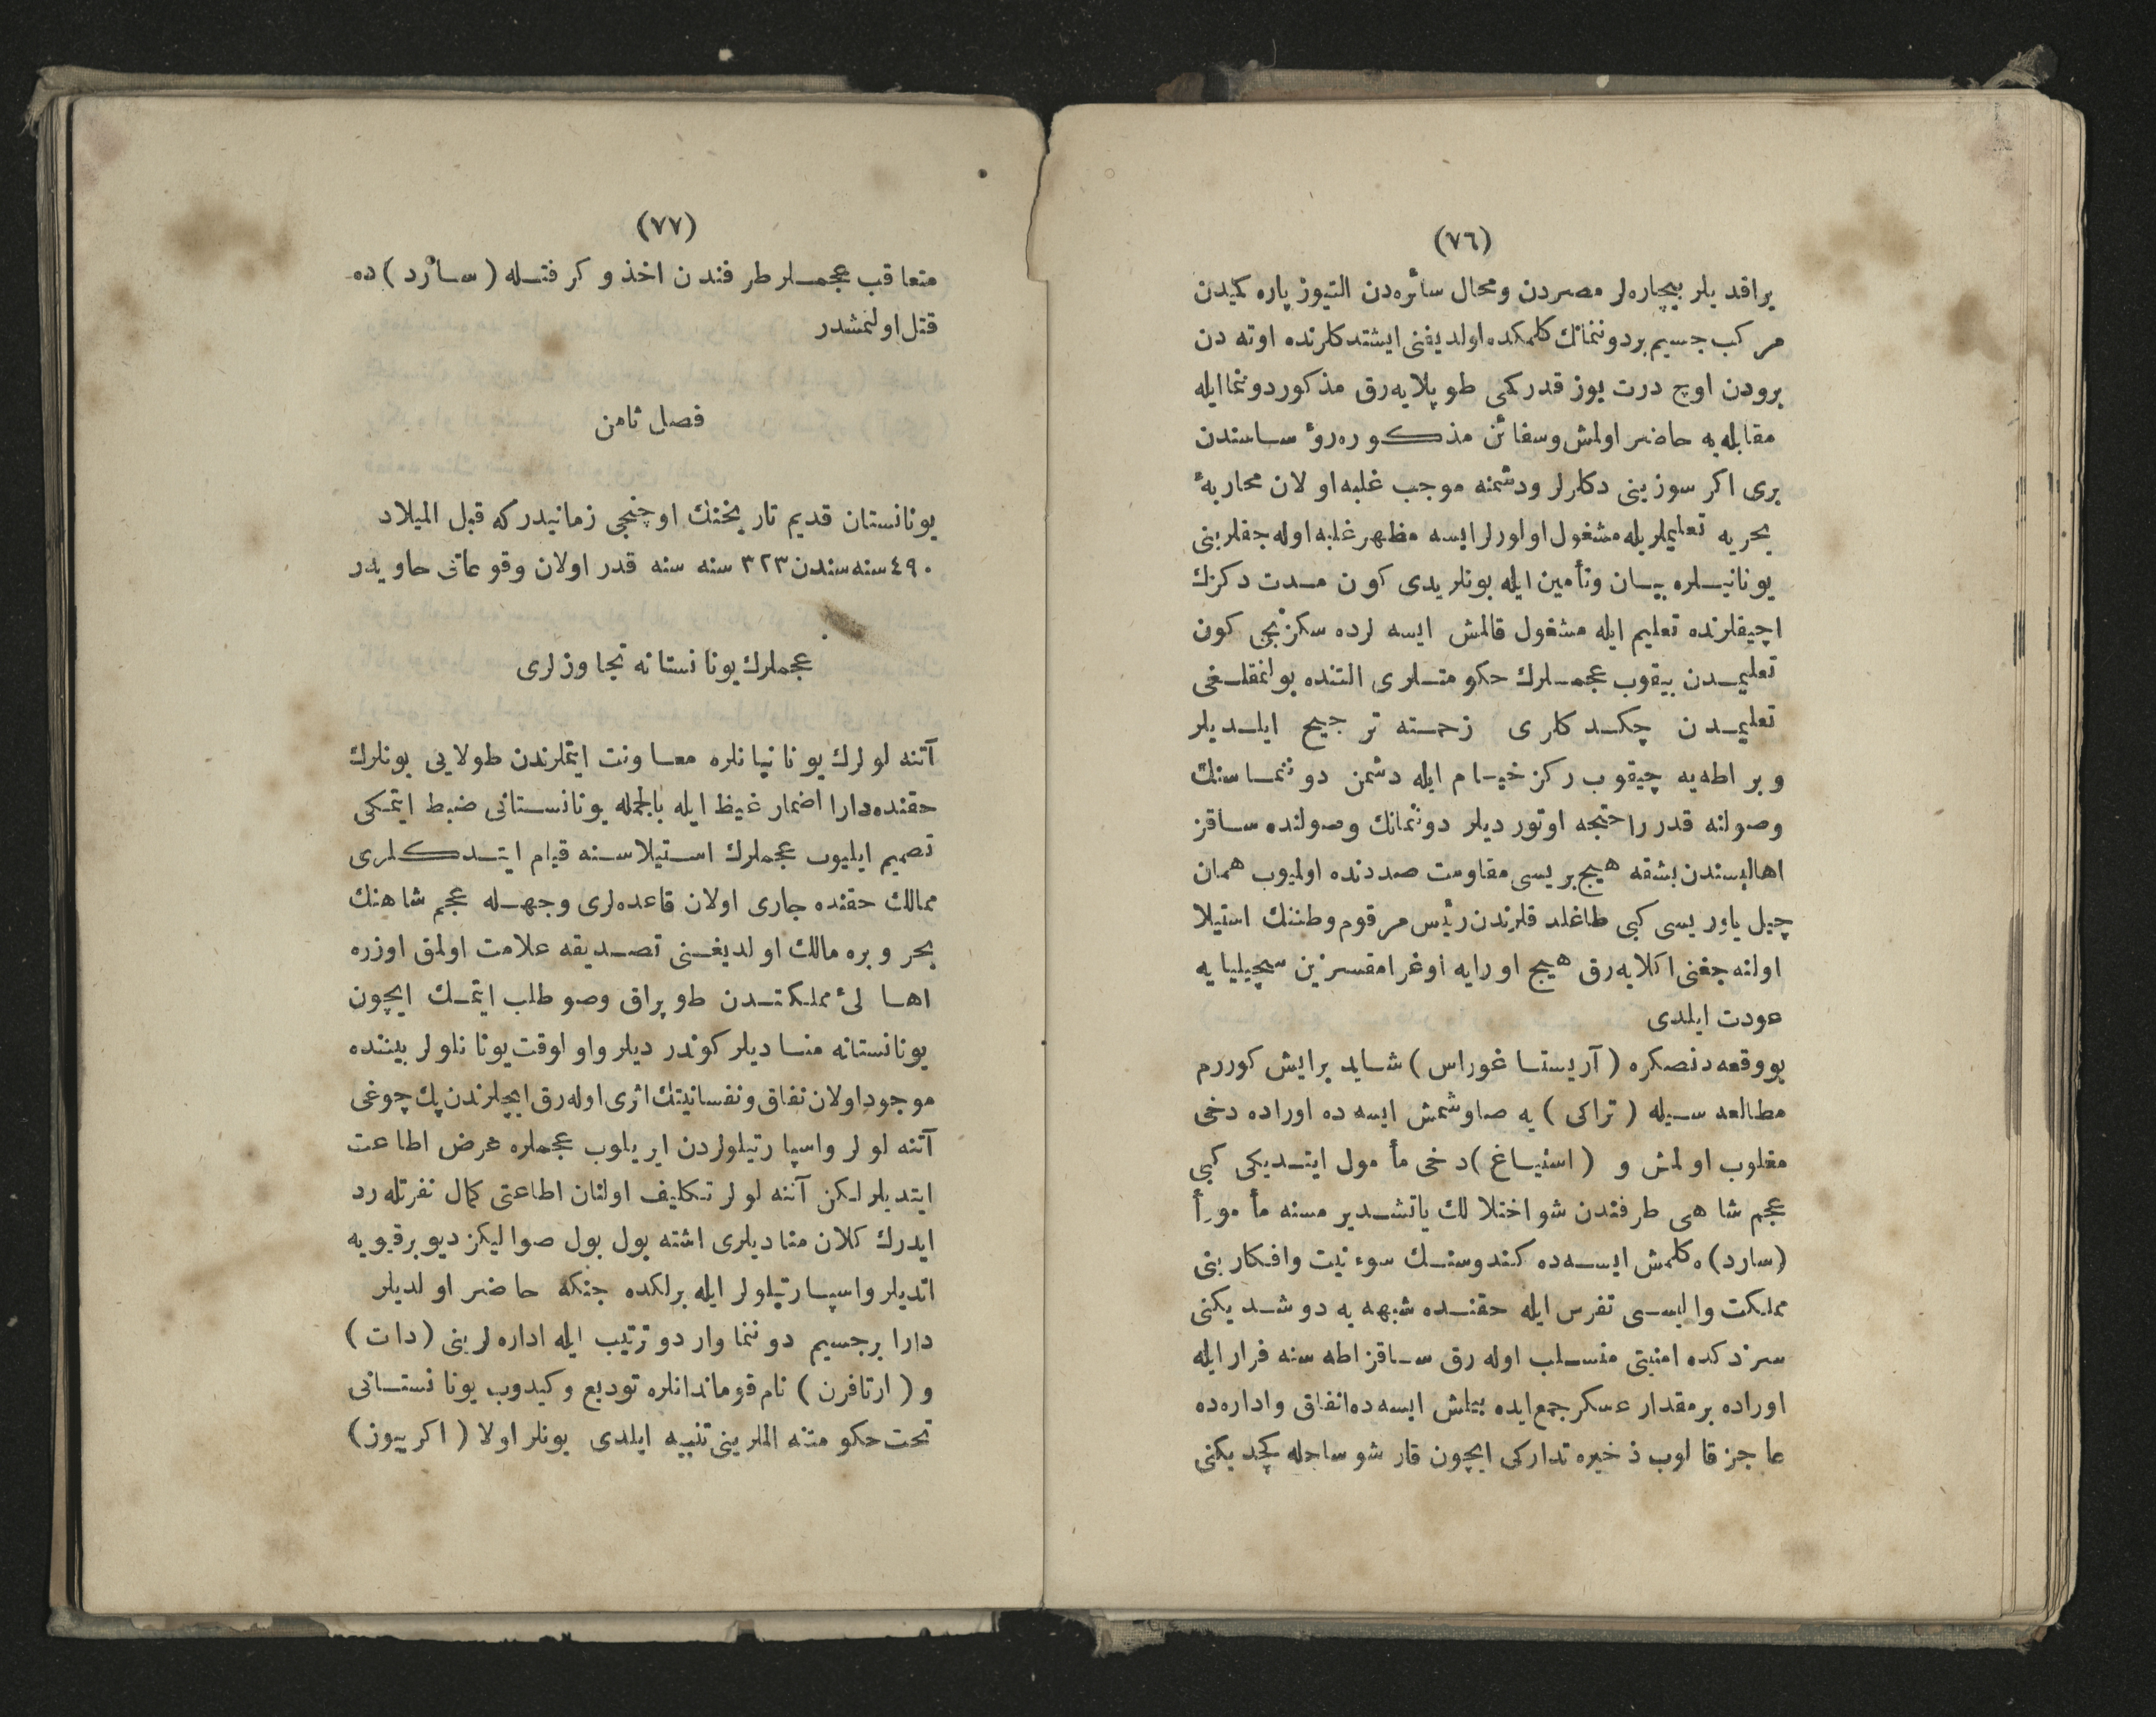 (٧٦)
براقدیلر بیچاره‌لر مصردن ومحال سائره‌دن التیوز پاره کمیدن
مرکب جسیم بردوننمانك کلمکده اولدیغنی ایشتدکلرنده اوته دن
برودن اوچ درت یوز قدر کمی طوپلایه‌رق مذکور دوننما ایله
مقابله‌یه حاضر اولمش وسفائن مذکوره رؤساسندن
بری اکر سوزینی دکلرلر ودشمنه موجب غلبه اولان محاربهٔ
بحریه تعلیملریله مشغول اولورلر ایسه مظهر غلبه اوله‌جقلرینی
یونانیلره بیان وتأمین ایله بونلر یدی کون مدت دکزك
اچیقلرنده تعلیم ایله مشغول قالمش ایسه لرده سکزنجی کون
تعلیمدن بیقوب عجملرك حکومتلری التنده بولنمقلغی
تعلیمدن چکدکلری زحمته ترجیح ایلدیلر
وبر اطه‌یه چیقوب رکز خیام ایله دشمن دوننماسنك
وصولنه قدر راحتجه اوتوردیلر دوننمانك وصولنده ساقز
اهالیسندن بشقه هیچ بریسی مقاومت صددنده اولمیوب همان
چیل یاوریسی کبی طاغلدقلرندن رئیس مرقوم وطننك استیلا
اولنه‌جغنی اکلایه‌رق هیچ اورایه اوغرامقسزین سیچیلیایه
عودت ایلدی
بووقعه‌دنصکره (آریستاغوراس) شاید برایش کوررم
مطالعه‌سیله (تراکی) یه صاوشمش ایسه ده اوراده دخی
مغلوب اولمش و (استیاغ) دخی مأمول ایتدیکی کبی
عجم شاهی طرفندن شو اختلالك یاتشدیرمسنه مأموراً
(سارد) ه کلمش ایسه‌ده کندوسنك سوء نیت وافکارینی
مملکت والیسی تفرس ایله حقنده شبهه یه دوشدیکنی
سزدکده امنیتی منسلب اوله‌رق ساقز اطه‌سنه فرار ایله
اوراده برمقدار عسکر جمع ایده بیلمش ایسه‌ده انفاق واداره‌ده
عاجز قالوب ذخیره تدارکی ایچون قارشو ساحله کچدیکنی
(٧٧)
متعاقب عجملر طرفندن اخذ وکرفتله (سارد) ده
قتل اولنمشدر
فصل ثامن
یونانستان قدیم تاریخنك اوچنجی زمانیدرکه قبل المیلاد
٤٩٠ سنه‌سندن ٣٢٣ سنه سنه قدر اولان وقوعاتی حاویدر
عجملرك یونانستانه تجاوزلری
آتنه لولرك یونانیانلره معاونت ایتملرندن طولایی بونلرك
حقنده دارا اضمار غیظ ایله بالجمله یونانستانی ضبط ایتمکی
تصمیم ایلیوب عجملرك استیلاسنه قیام ایتدکلری
ممالك حقنده جاری اولان قاعده‌لری وجهله عجم شاهنك
بحر وبره مالك اولدیغنی تصدیقه علامت اولمق اوزره
اهالئ مملکتدن طوپراق وصو طلب ایتمك ایچون
یونانستانه منادیلر کوندردیلر واو اوقت یونانلولر بیننده
موجود اولان نفاق ونفسانیتك اثری اوله‌رق ایچلرندن پك چوغی
آتنه لولر واسپارتیلولردن ایریلوب عجملره عرض اطاعت
ایتدیلر لکن آتنه لولر تکلیف اولنان اطاعتی کمال نفرتله رد
ایدرك کلان منادیلری اشته بول بول صو الیکز دیو برقیویه
اتدیلر واسپارتیلولر ایله برلکده جنکه حاضر اولدیلر
دارا برجسیم دوننما واردو ترتیب ایله اداره‌لرینی (دات)
و (ارتافرن) نام قوماندانلره تودیع وکیدوب یونانستانی
تحت حکومتنه الملرینی تنبیه ایلدی بونلر اولا (اکریبوز)